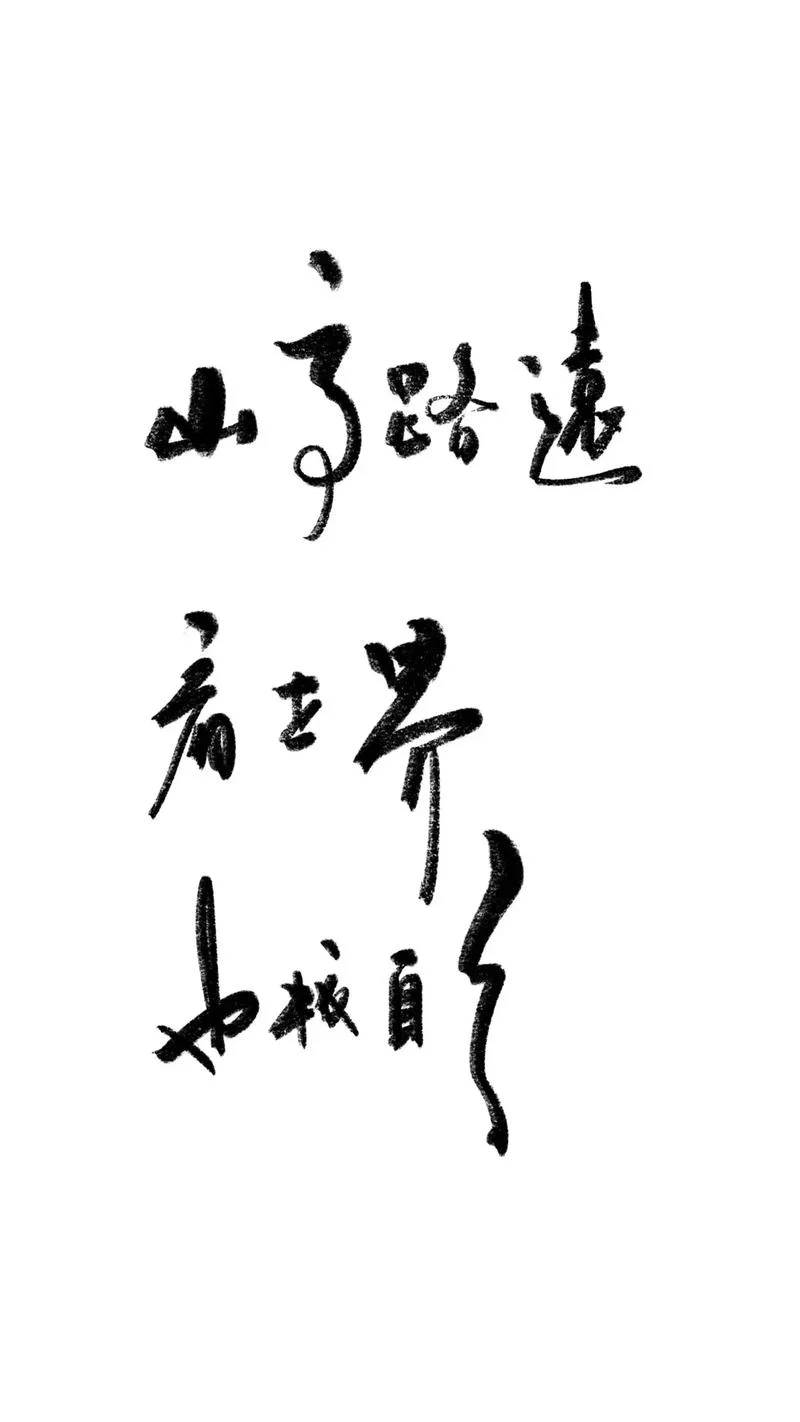 山高路遠
看世界
也找自己